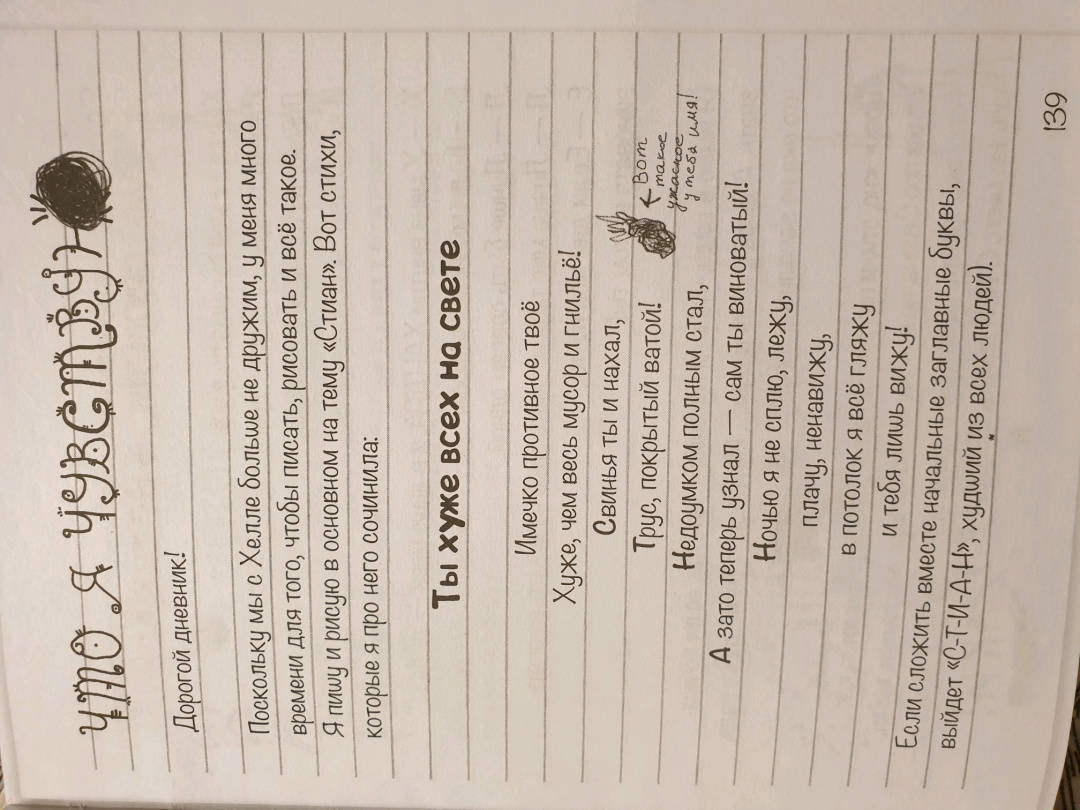 ЧТО Я ЧУВСТВУЮ
Дорогой дневник!
Поскольку мы с Хелле больше не дружим, у меня много
времени для того, чтобы писать, рисовать и всё такое.
Я пишу и рисую в основном на тему «Стиан». Вот стихи,
которые я про него сочинила:
Ты хуже всех на свете
Имечко противное твоё
Хуже, чем весь мусор и гнильё!
Свинья ты и нахал,
Трус, покрытый ватой!
← Вот
такое
ужасное
у тебя имя!
Недоумком полным стал,
А зато теперь узнал — сам ты виноватый!
Ночью я не сплю, лежу,
плачу, ненавижу,
в потолок я всё гляжу
и тебя лишь вижу!
Если сложить вместе начальные заглавные буквы,
выйдет «С-Т-И-А-Н», худший из всех людей).
139